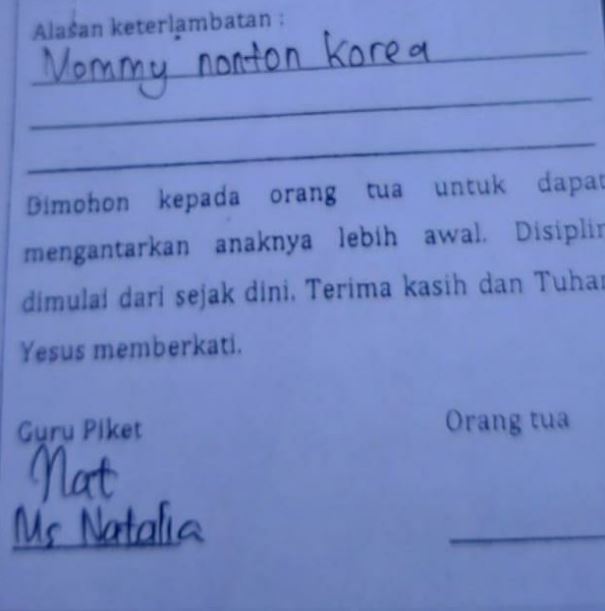 Alasan keterlambatan :
Mommy nonton korea
Dimohon kepada orang tua untuk dapat
mengantarkan anaknya lebih awal. Disiplin
dimulai dari sejak dini. Terima kasih dan Tuhan
Yesus memberkati.
Guru Piket Orang tua
Nat
Ms Natalia